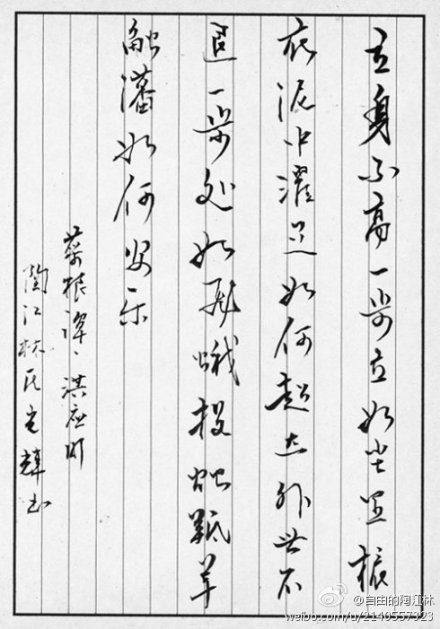 立身不高一步立如尘里振
衣泥中濯足如何超达处世不
退一步处如飞蛾投烛羝羊
触藩如何安乐
菜根谭、洪应明
陶江林民辉书
@自由的陶江林
weibo.com/u/2140557323